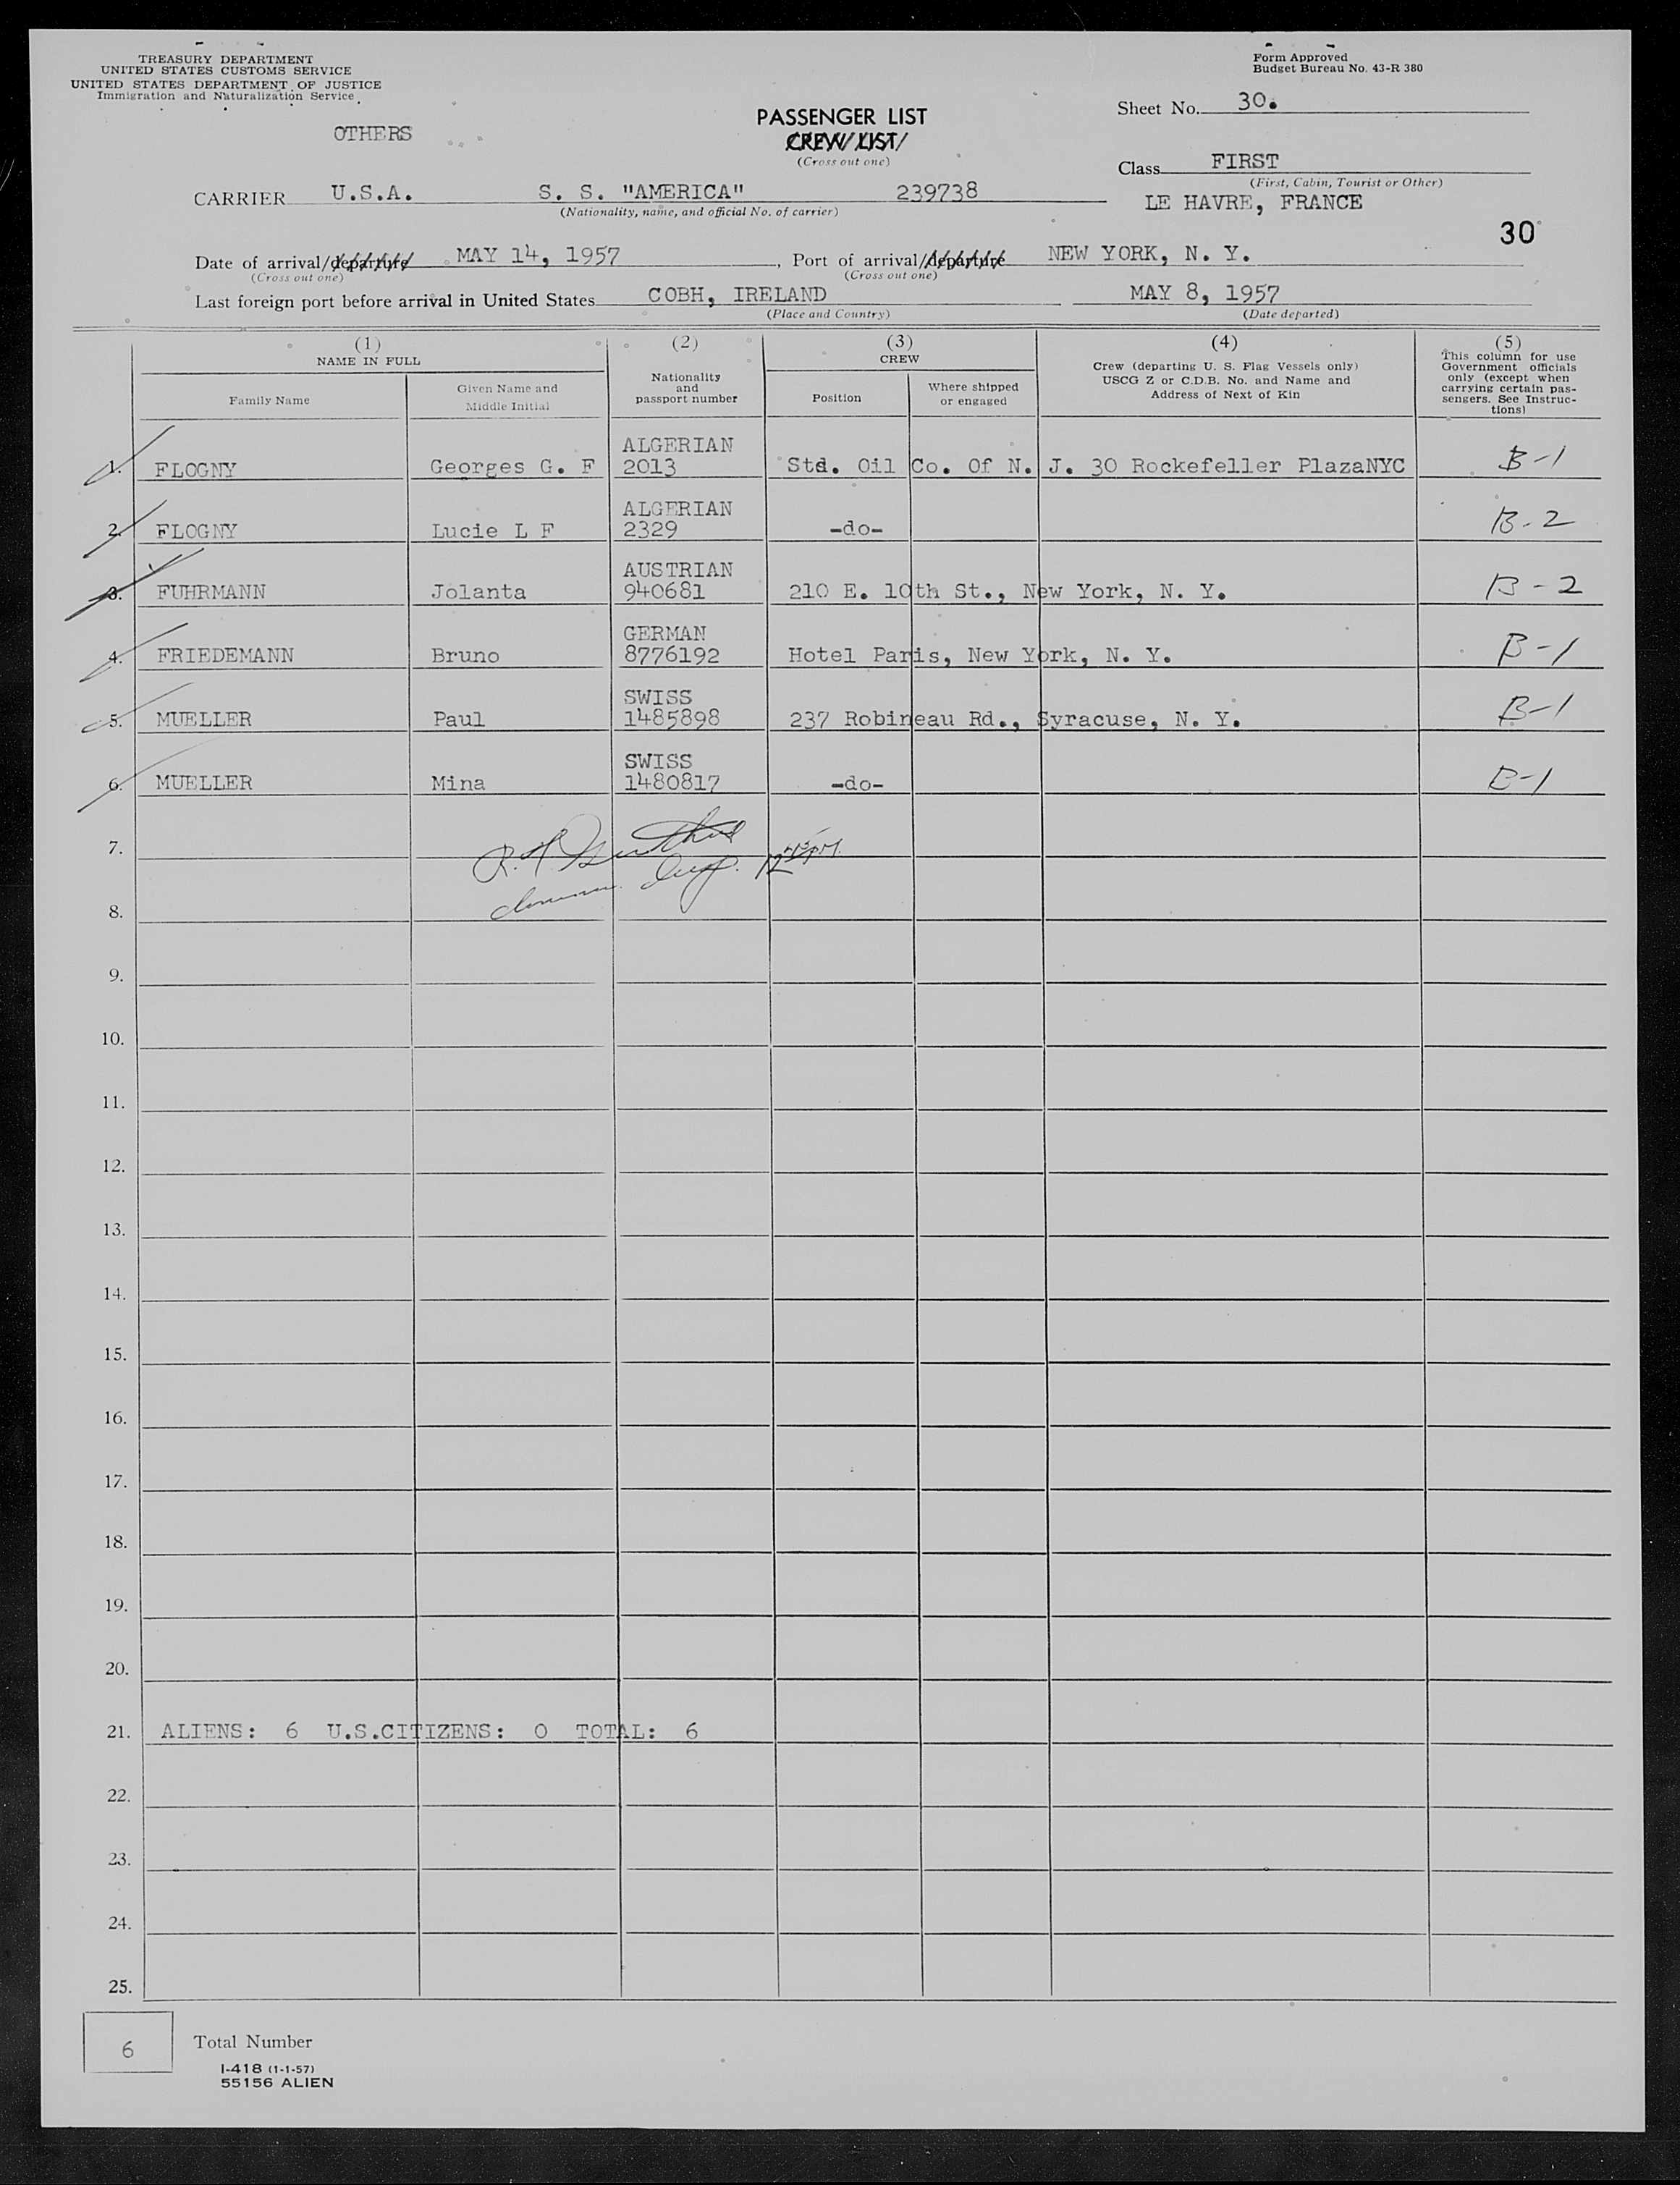 TREASURY DEPARTMENT
UNITED STATES CUSTOMS SERVICE
UNITED STATES DEPARTMENT OF JUSTICE
Immigration and Naturalization Service
Form Approved
Budget Bureau No. 43-R 380
OTHERS
PASSENGER LIST
CREW LIST
(Cross out one)
Sheet No. 30.
Class FIRST
(First, Cabin, Tourist or Other)
CARRIER U.S.A. S. S. "AMERICA" 239738
(Nationality, name, and official No. of carrier)
LE HAVRE, FRANCE
30
Date of arrival/departure MAY 14, 1957, Port of arrival/departure NEW YORK, N. Y.
(Cross out one) (Cross out one)
Last foreign port before arrival in United States COBH, IRELAND MAY 8, 1957
(Place and Country) (Date departed)
(1) NAME IN FULL
Family Name
Given Name and Middle Initial
(2) Nationality and passport number
(3) CREW
Position
Where shipped or engaged
(4) Crew (departing U. S. Flag Vessels only) USCG Z or C.D.B. No. and Name and Address of Next of Kin
(5) This column for use Government officials only (except when carrying certain passengers. See Instructions)
1. FLOGNY Georges G. F ALGERIAN 2013 Std. Oil Co. Of N. J. 30 Rockefeller PlazaNYC B-1
2. FLOGNY Lucie L F ALGERIAN 2329 -do- B-2
3. FUHRMANN Jolanta AUSTRIAN 940681 210 E. 10th St., New York, N. Y. B-2
4. FRIEDEMANN Bruno GERMAN 8776192 Hotel Paris, New York, N. Y. B-1
5. MUELLER Paul SWISS 1485898 237 Robineau Rd., Syracuse, N. Y. B-1
6. MUELLER Mina SWISS 1480817 -do- B-1
7.
8.
9.
10.
11.
12.
13.
14.
15.
16.
17.
18.
19.
20.
21. ALIENS: 6 U.S.CITIZENS: 0 TOTAL: 6
22.
23.
24.
25.
6 Total Number
I-418 (1-1-57)
55156 ALIEN